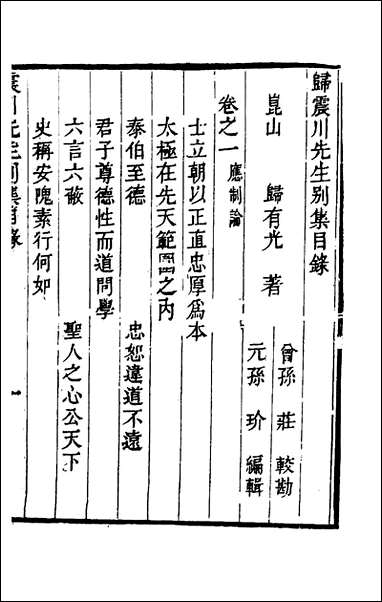 歸震川先生別集目錄
崑山 歸有光 著
曾孫 莊 較勘
元孫 玠 編輯
卷之一 應制論
士立朝以正直忠厚爲本
太極在先天範圍之内
泰伯至德 忠恕違道不遠
君子尊德性而道問學
六言六蔽 聖人之心公天下
史稱安隗素行何如
震川先生別集目錄
一